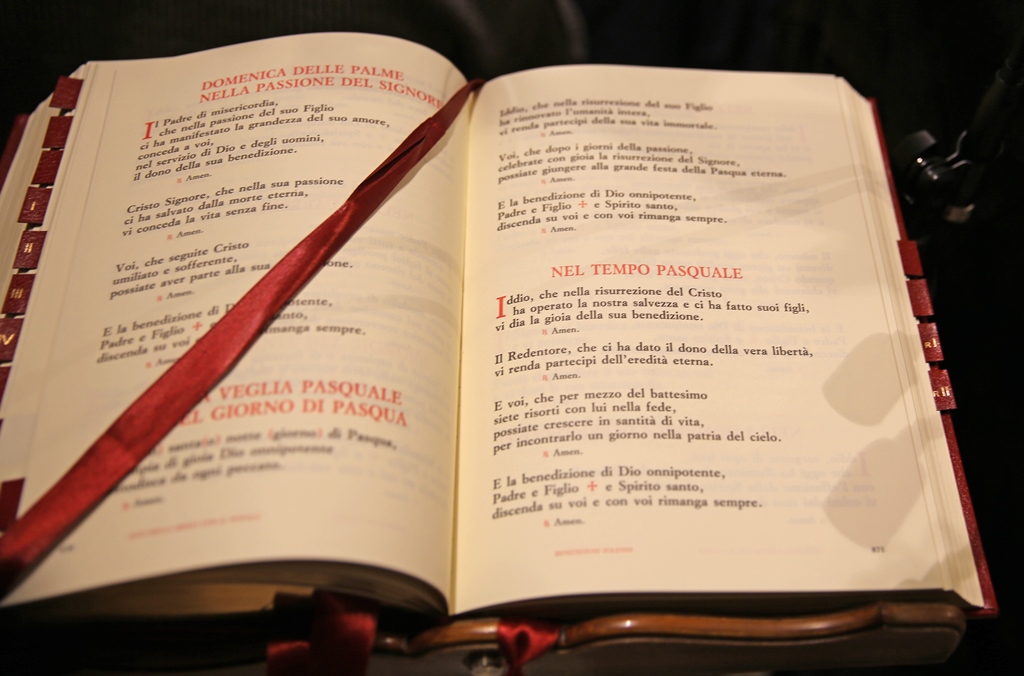 DOMENICA DELLE PALME
NELLA PASSIONE DEL SIGNORE
Il Padre di misericordia,
che nella passione del suo Figlio
ci ha manifestato la grandezza del suo amore,
conceda a voi,
nel servizio di Dio e degli uomini,
il dono della sua benedizione.
℟ Amen.
Cristo Signore, che nella sua passione
ci ha salvato dalla morte eterna,
vi conceda la vita senza fine.
℟ Amen.
Voi, che seguite Cristo
umiliato e sofferente,
possiate aver parte alla sua
℟ Amen.
E la benedizione di
Padre e Figlio ✢
discenda su voi rimanga sempre.
VEGLIA PASQUALE
GIORNO DI PASQUA
santa(a) notte (giorno) di Pasqua,
di gioia Dio onnipotente
da ogni peccato.
℟ Amen.
Iddio, che nella risurrezione del suo Figlio
ha rinnovato l'umanità intera,
vi renda partecipi della sua vita immortale.
℟ Amen.
Voi, che dopo i giorni della passione,
celebrate con gioia la risurrezione del Signore,
possiate giungere alla grande festa della Pasqua eterna.
℟ Amen.
E la benedizione di Dio onnipotente,
Padre e Figlio ✢ e Spirito santo,
discenda su voi e con voi rimanga sempre.
℟ Amen.
NEL TEMPO PASQUALE
Iddio, che nella risurrezione del Cristo
ha operato la nostra salvezza e ci ha fatto suoi figli,
vi dia la gioia della sua benedizione.
℟ Amen.
Il Redentore, che ci ha dato il dono della vera libertà,
vi renda partecipi dell'eredità eterna.
℟ Amen.
E voi, che per mezzo del battesimo
siete risorti con lui nella fede,
possiate crescere in santità di vita,
per incontrarlo un giorno nella patria del cielo.
℟ Amen.
E la benedizione di Dio onnipotente,
Padre e Figlio ✢ e Spirito santo,
discenda su voi e con voi rimanga sempre.
℟ Amen.
BENEDIZIONI SOLENNI
I
II
III
IV